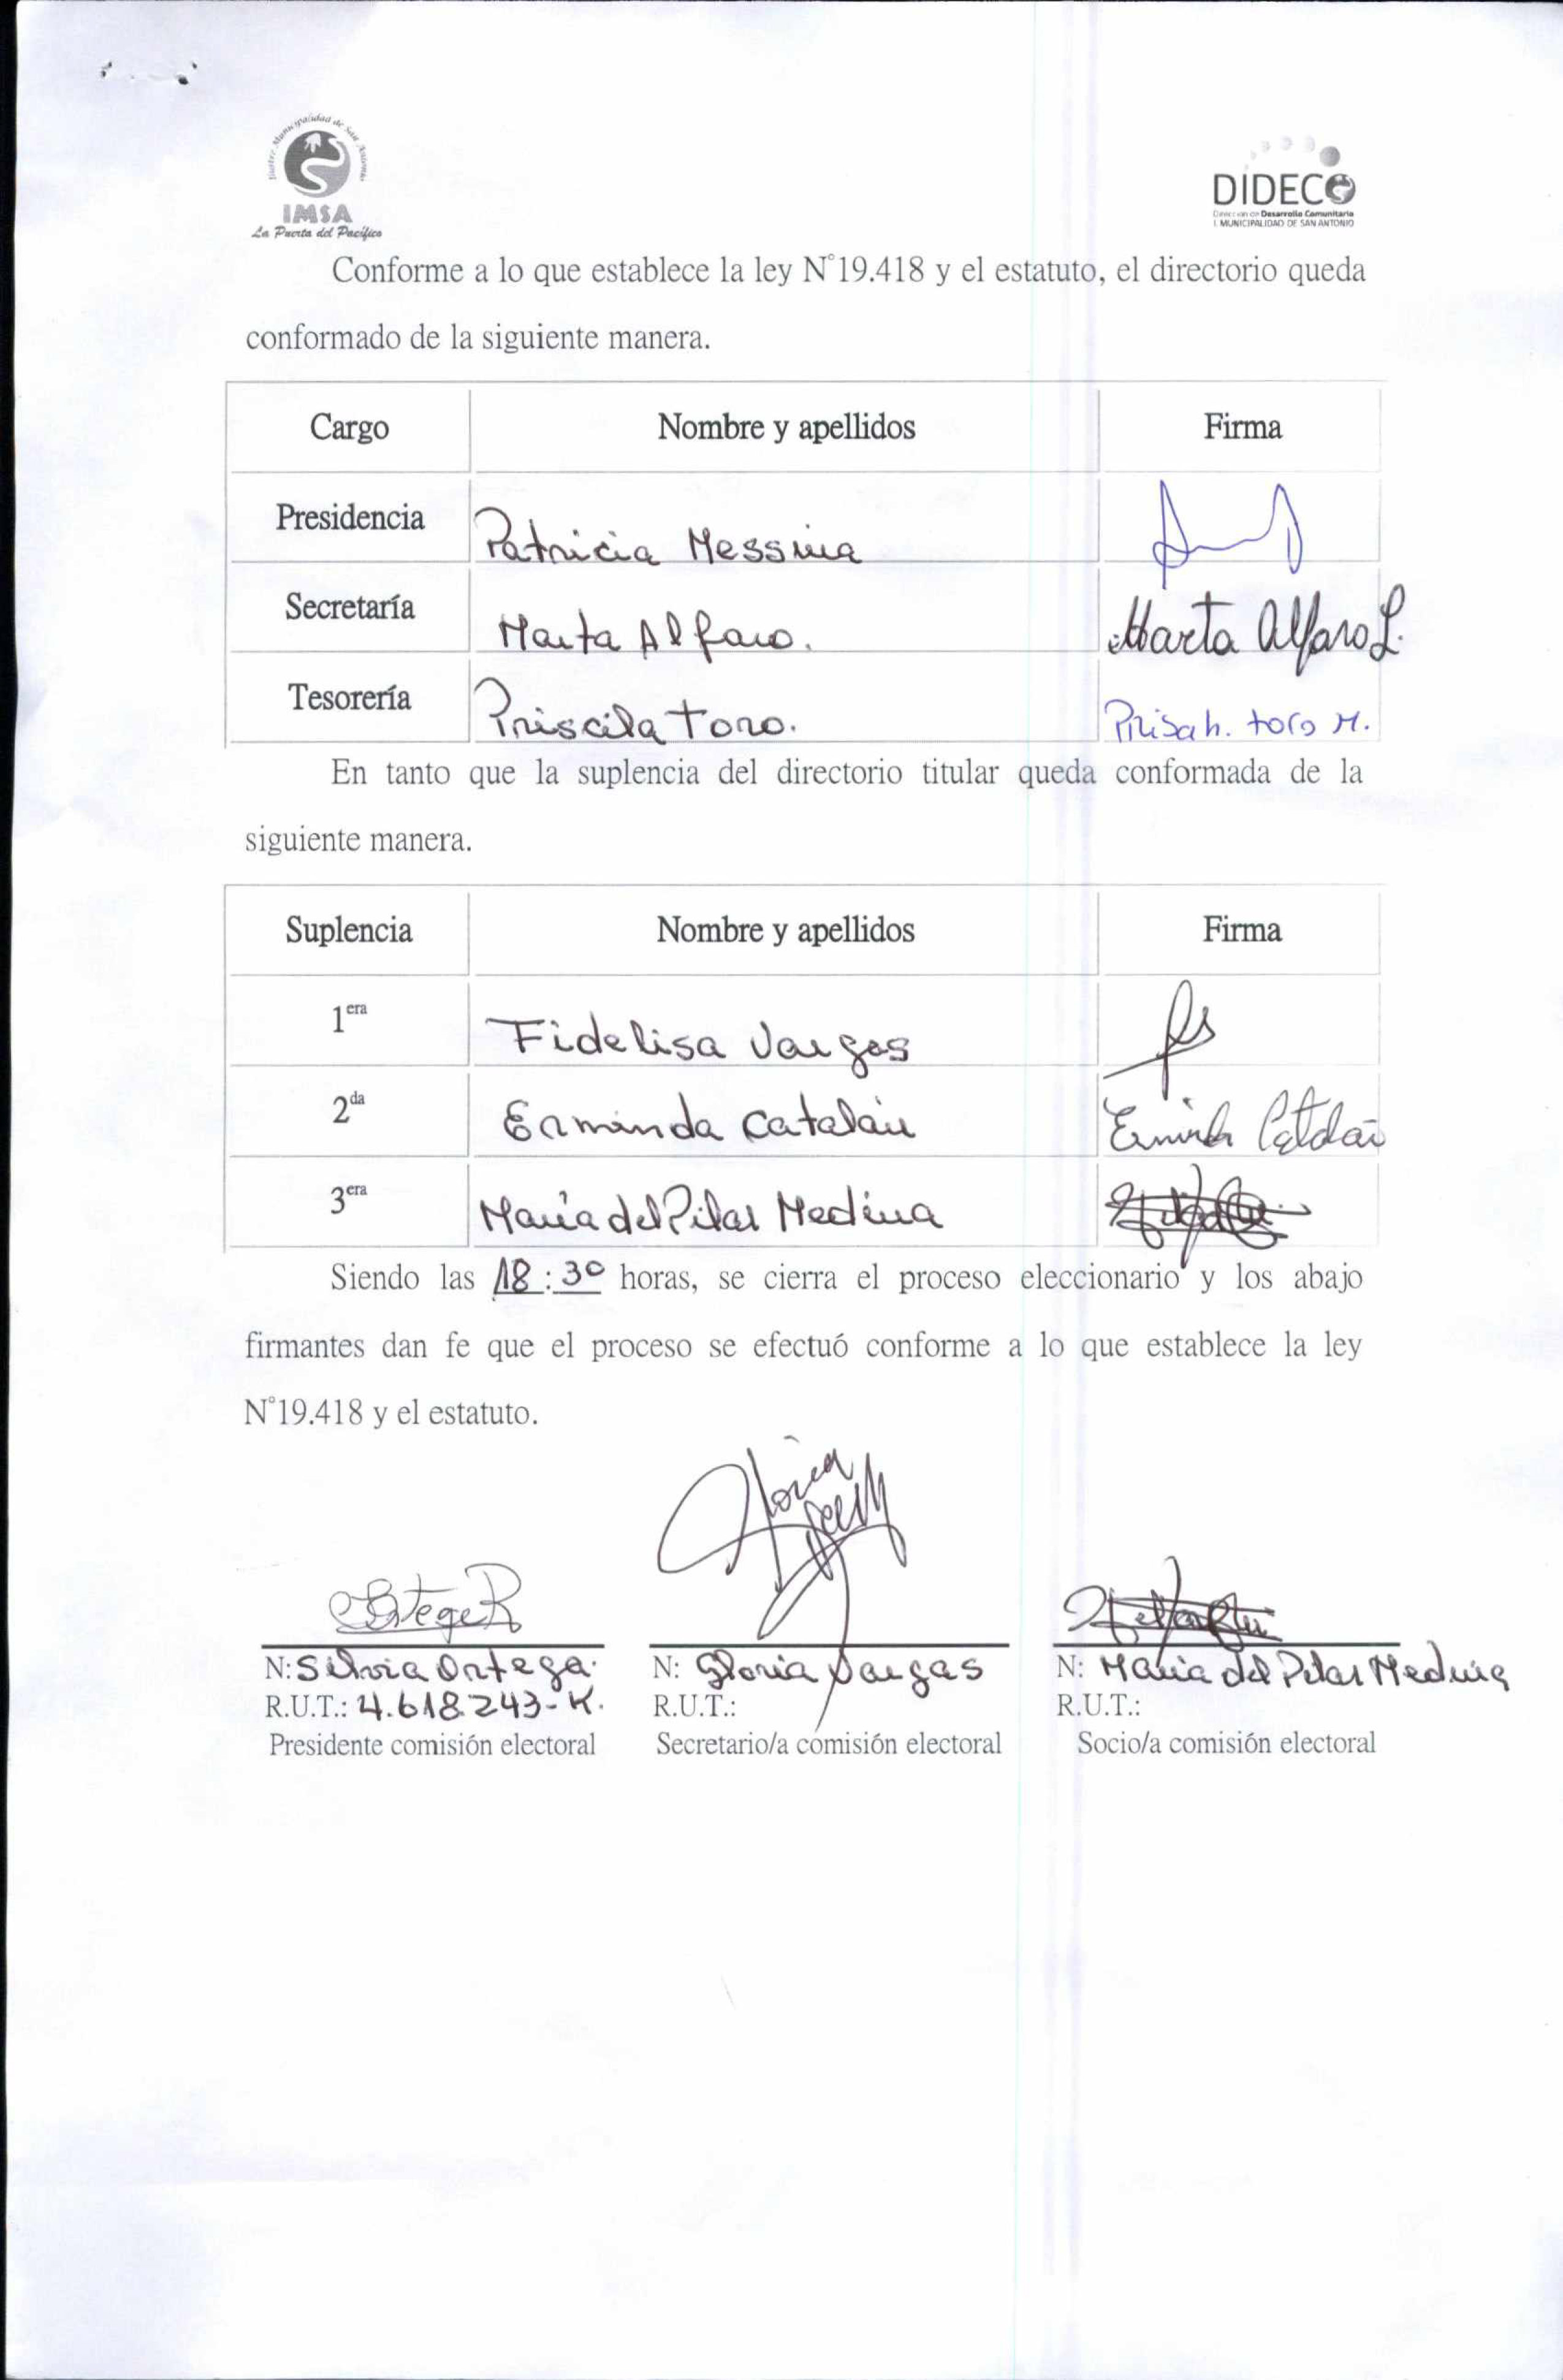 Ilustre Municipalidad de San Antonio
IMSA
La Puerta del Pacífico
DIDECO
Dirección de Desarrollo Comunitario
I. MUNICIPALIDAD DE SAN ANTONIO
Conforme a lo que establece la ley N°19.418 y el estatuto, el directorio queda
conformado de la siguiente manera.
Cargo Nombre y apellidos Firma
Presidencia Patricia Messina
Secretaría Marta Alfaro. Marta Alfaro L.
Tesorería Priscila Toro. toro M.
En tanto que la suplencia del directorio titular queda conformada de la
siguiente manera.
Suplencia Nombre y apellidos Firma
1era Fidelisa Vargas
2da Erminda Catalán
3era María del Pilar Medina
Siendo las 18:30 horas, se cierra el proceso eleccionario y los abajo
firmantes dan fe que el proceso se efectuó conforme a lo que establece la ley
N°19.418 y el estatuto.
N: Silvia Ortega. N: Gloria Vargas N: María del Pilar Medina
R.U.T.: 4.618.243-K. R.U.T.: R.U.T.:
Presidente comisión electoral Secretario/a comisión electoral Socio/a comisión electoral